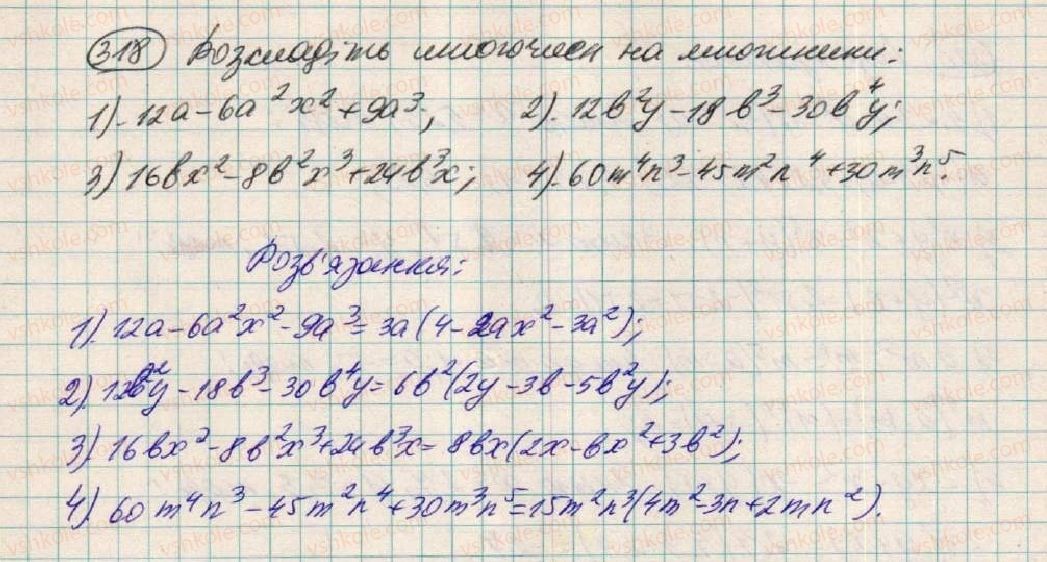 318 Розкладіть многочлен на множники:
1). 12a - 6a²x² + 9a³; 2). 12b²y - 18b³ - 30b⁴y;
3) 16bx² - 8b²x³ + 24b³x; 4). 60m⁴n³ - 45m²n⁴ + 30m³n⁵.
Розв'язання:
1). 12a - 6a²x² - 9a³ = 3a(4 - 2ax² - 3a²);
2). 12b²y - 18b³ - 30b⁴y = 6b²(2y - 3b - 5b²y);
3) 16bx² - 8b²x³ + 24b³x = 8bx(2x - bx² + 3b²);
4). 60m⁴n³ - 45m²n⁴ + 30m³n⁵ = 15m²n³(4m² - 3n + 2mn²).